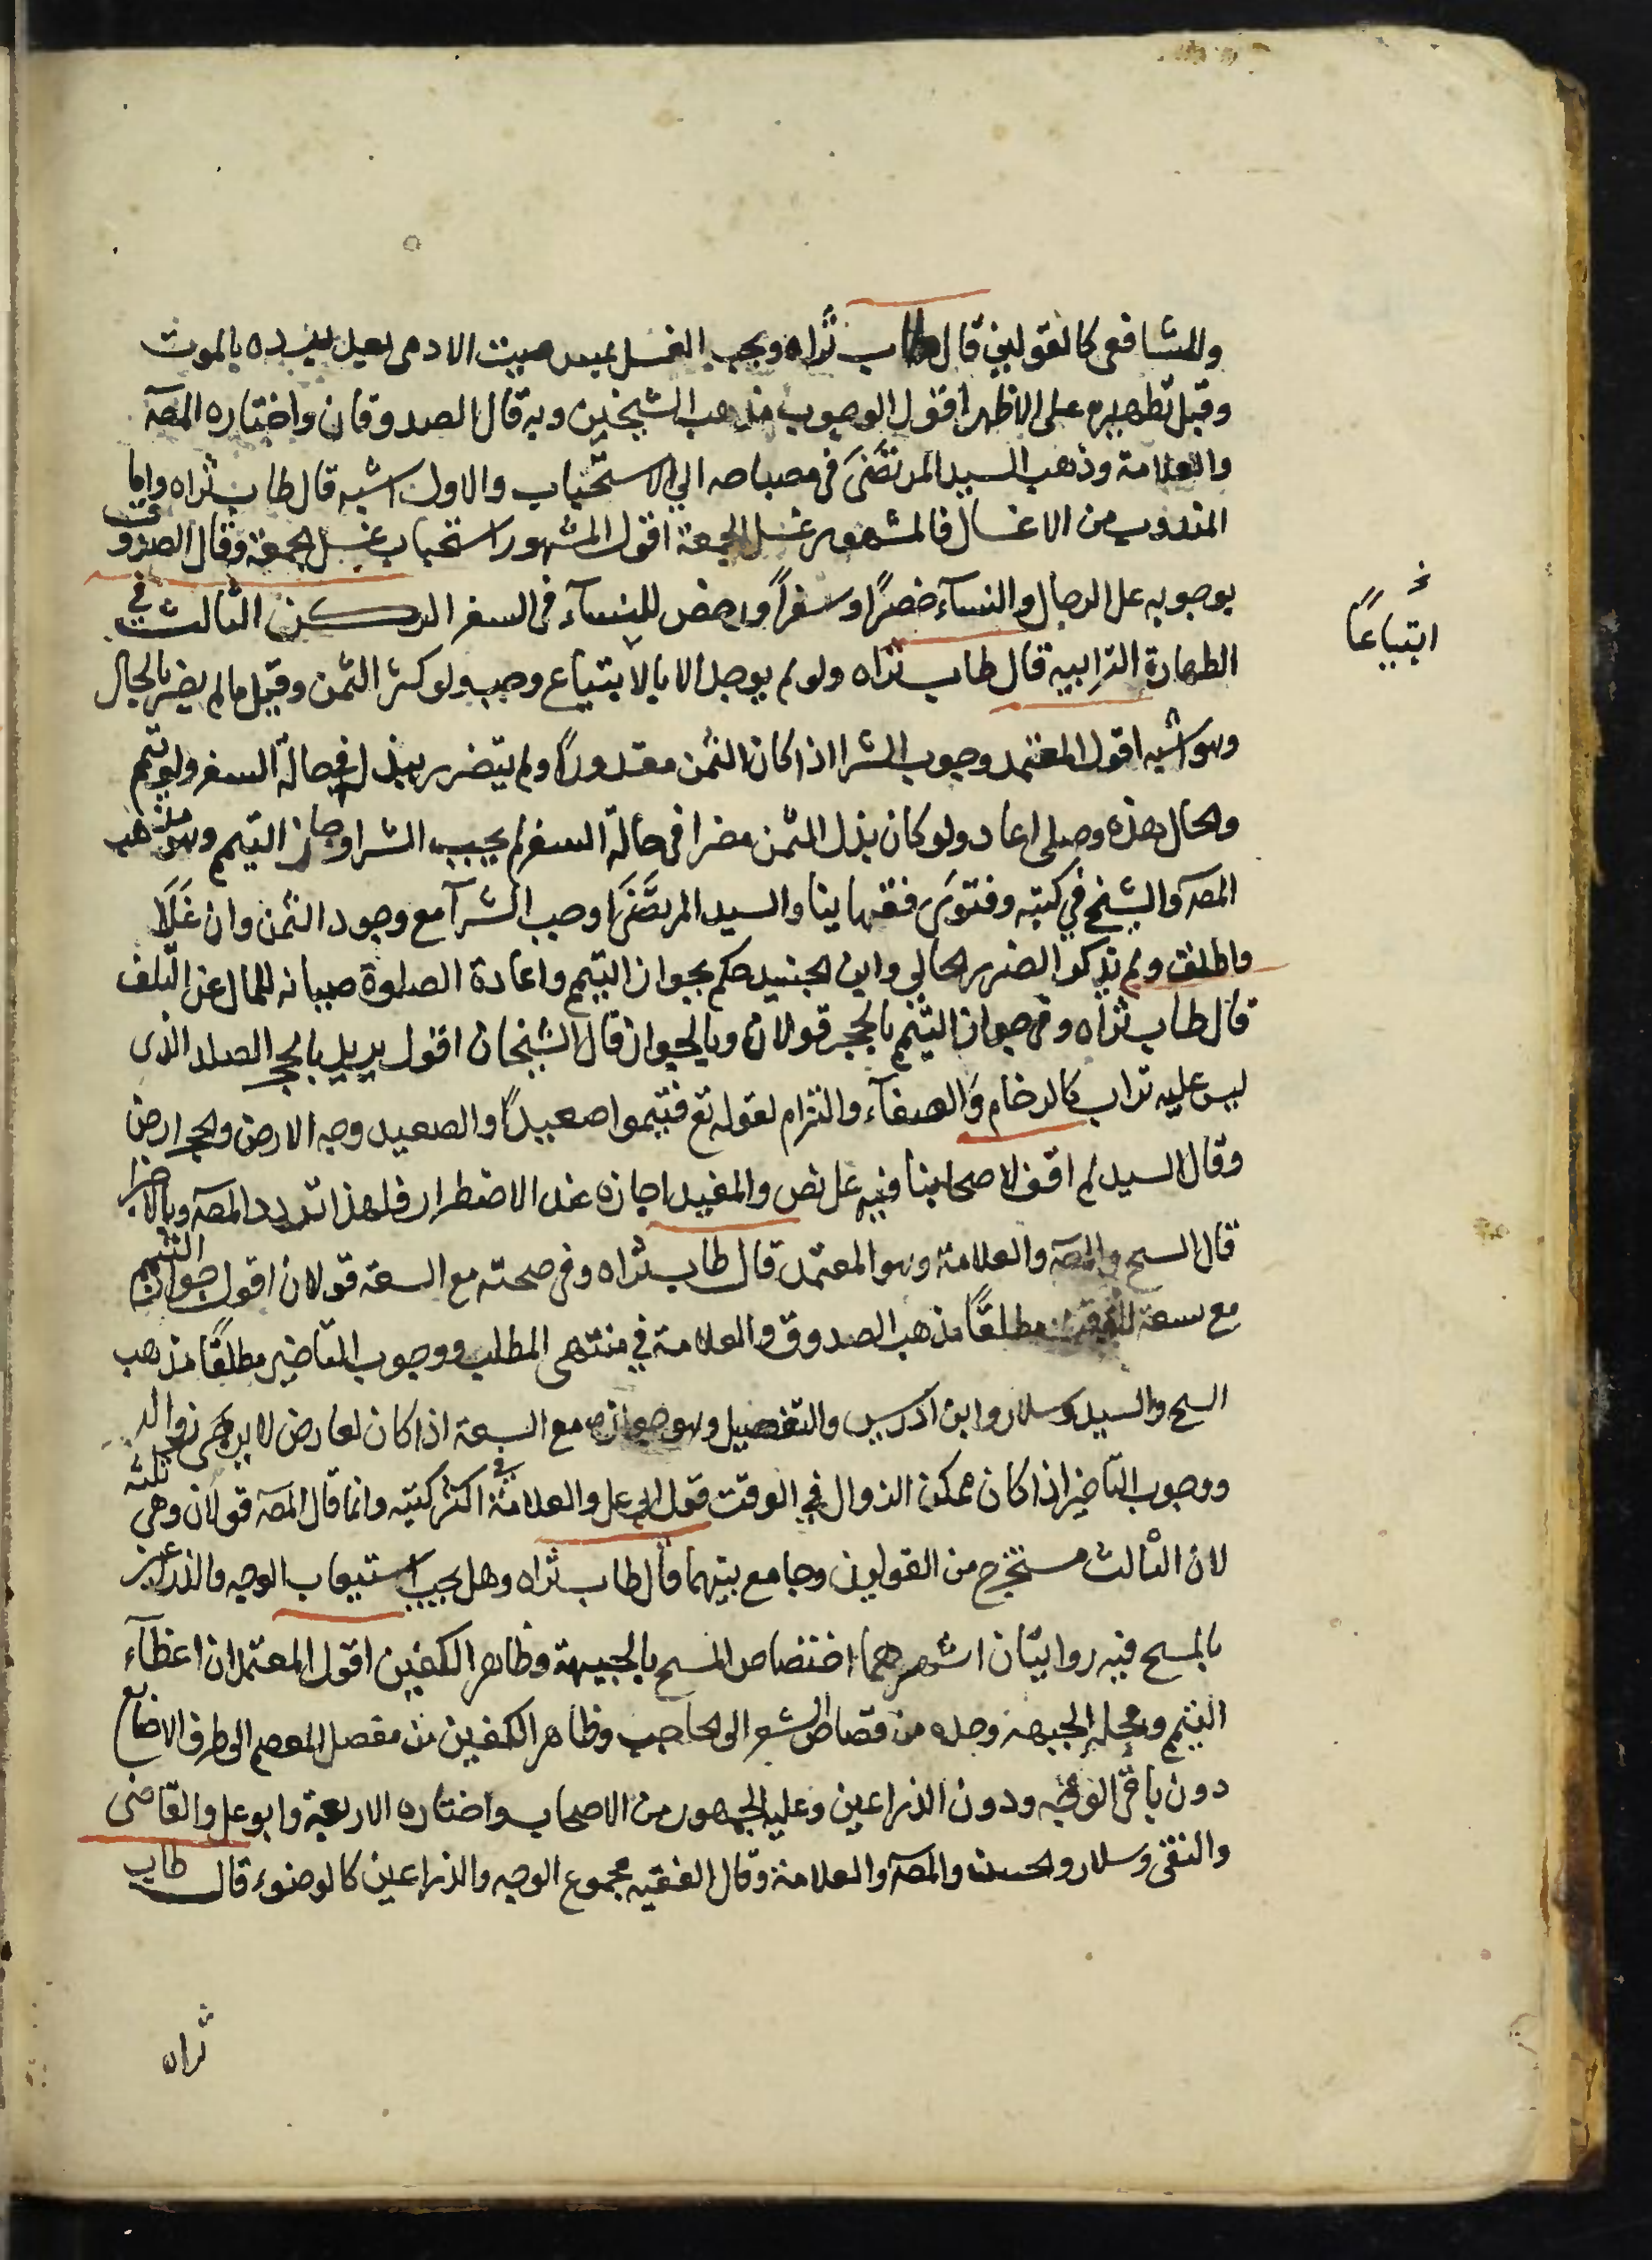 وللشافعى كالقولين قال طاب ثراه ويجب الغسل بمس ميت الادمى بعد برده بالموت
وقبل تطهيره على الاظهر اقول الوجوب مذهب الشيخين وبه قال الصدوقان واختاره المصۤ
والعلامة وذهب السيد المرتضَى فى مصباحه الي الاستحباب والاول اشبه قال طاب ثراه واما
المندوب من الاغسال فالمشهور غسل الجمعة اقول المشهور استحباب غسل الجمعة وقال الصدوق
بوجوبه على الرجال والنسآء حضرًا وسفراً ورخص للنسآء فى السفر الركن الثالث في
الطهارة الترابيه قال طاب ثراه ولو لم يوجد الا بالابتياع وجب ولو كثر الثمن وقيل ما لم يضر بالحال
وهو اشبه اقول المعتمد وجوب الشرا اذا كان الثمن مقدورًا ولم يتضرر ببذله فى حالة السفر ولو تيمم
والحال هذه وصلى اعاد ولو كان بذل الثمن مضرا فى حالة السفر لم يجب الشرا وجاز التيمم وهو مذهب
المصۤ والشيخ في كتبه وفتوى فقهاينا والسيد المرتضَى اوجب الشرآ مع وجود الثمن وان غَلَا
واطلق ولم يذكر الضرر الحالي وابن الجنيد حكم بجواز التيمم واعادة الصلوة صيانه للمال عن التلف
قال طاب ثراه وفى جواز التيمم بالحجر قولان وبالجواز قال الشيخان اقول يريد بالحجر الصلد الذى
ليس عليه تراب كالرخام والصفآء والتزام لقوله تع فتيمموا صعيدًا والصعيد وجه الارض والحجر ارض
وقال السيد لم اقف لاصحابنا فيه على نص والمفيد اجازه عند الاضطرار فلهذا تردد المصۤ وبالاخر
قال السح والمصۤ والعلامة وهو المعتمد قال طاب ثراه وفى صحته مع السعة قولان اقول جواز التيمم
مع سعة الوقت مطلقًا مذهب الصدوق والعلامة في منتهى المطلب ووجوب التاخير مطلقًا مذهب
السح والسيد وسلار وابن ادريس والتفصيل وهو جوازه مع السعة اذا كان لعارض لا يرجى زواله
ووجوب التاخير اذا كان ممكن الزوال فى الوقت قول ابى على والعلامة فى اكثر كتبه وانما قال المصۤ قولان وهى ثلثه
لان الثالث مستخرج من القولين وجامع بينهما قال طاب ثراه وهل يجب استيعاب الوجه والذراعين
بالمسح فيه روايتان اشهرهما اختصاص المسح بالجبهة وظاهر الكفين اقول المعتمد ان اعظآء
التيمم ومحله الجبهة وحده من قصاص الشعر الى الحاجب وظاهر الكفين من مفصل المعصم الى طرف الاصابع
دون باقى الوجه ودون الذراعين وعليه الجمهور من الاصحاب واختاره الاربعة وابو على والقاضى
والتقى وسلار والحسن والمصۤ والعلامة وقال الفقيه مجموع الوجه والذراعين كالوضوء قال طاب
ثراه
ابتياعًا
خ